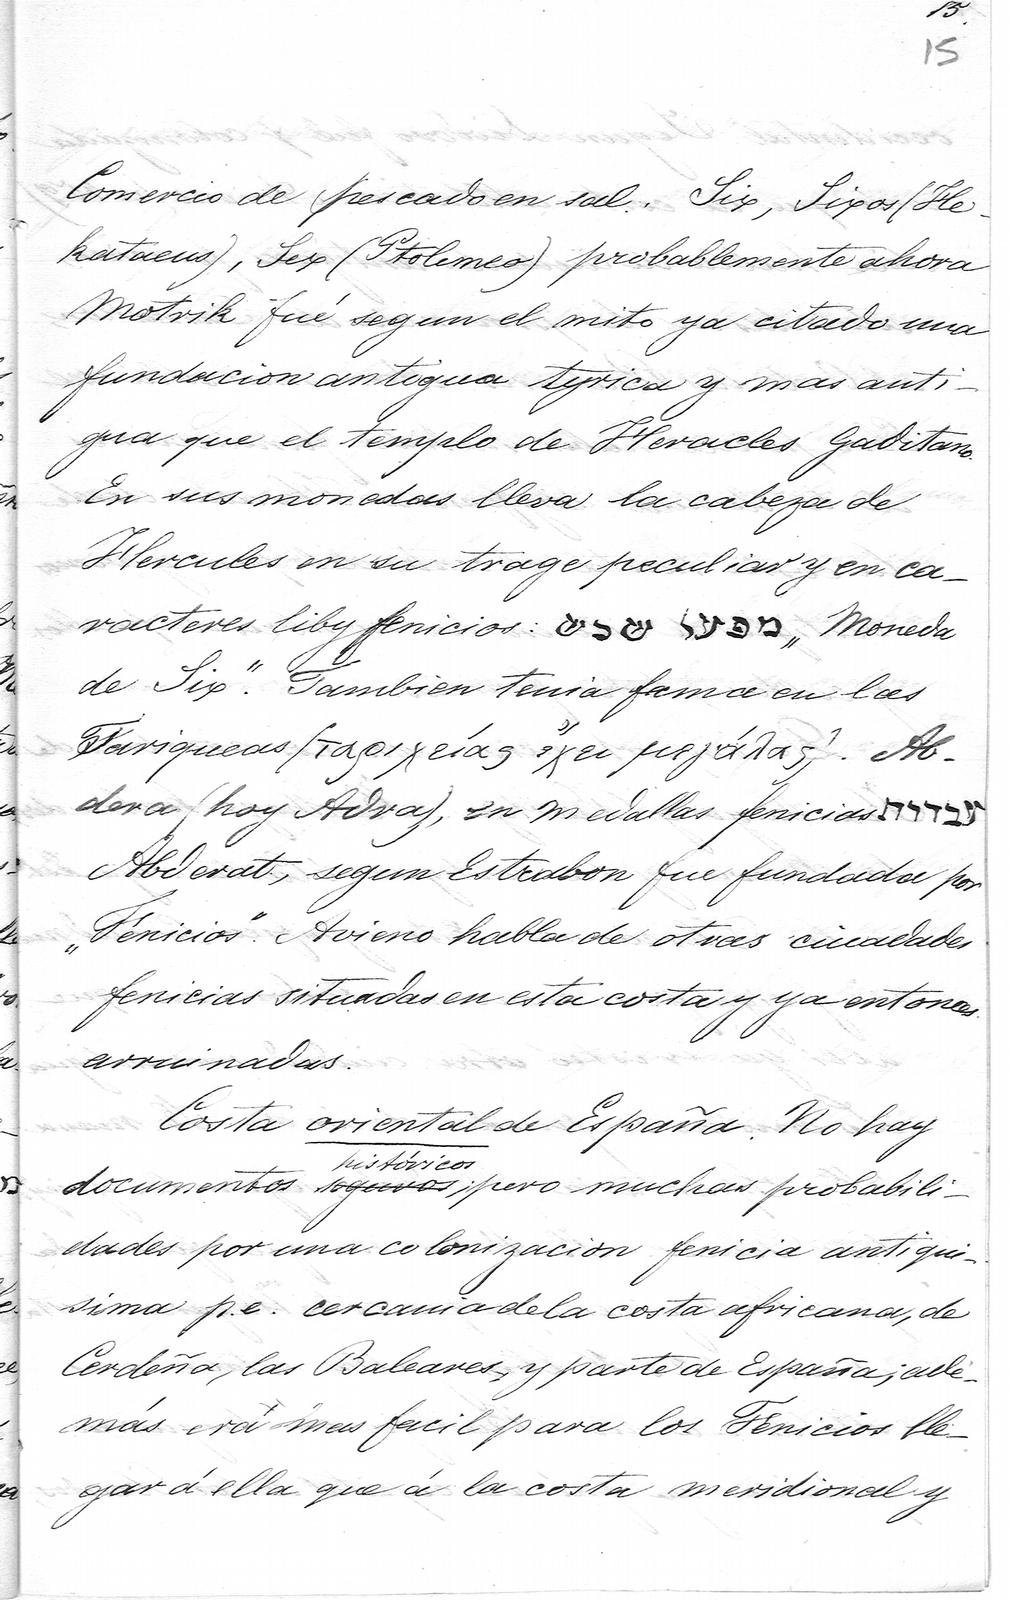 15.
15
Comercio de pescado en sal. Six, Sixos (He-
kataeus), Sex (Ptolemeo) probablemente ahora
Motrik fué segun el mito ya citado una
fundacion antigua tyrica y mas anti-
gua que el templo de Heracles Gaditano.
En sus monedas lleva la cabeza de
Hercules en su trage peculiar y en ca-
racteres liby fenicios: מפעל שכש „Moneda
de Six“. Tambien tenia fama en las
Tariqueas (ταριχείας ἔχει μεγάλας). Ab-
dera (hoy Adra), en medallas fenicias עבדרת
Abderat, segun Estrabon fue fundada por
„Fenicios“. Avieno habla de otras ciudades
fenicias situadas en esta costa y ya entonces
arruinadas.
Costa oriental de España. No hay
históricos
documentos seguros, pero muchas probabili-
dades por una colonizacion fenicia antiqui-
sima p.e. cercania de la costa africana, de
Cerdeña, las Baleares, y parte de España; ade-
más erá mas facil para los Fenicios lle-
gar á ella que á la costa meridional y